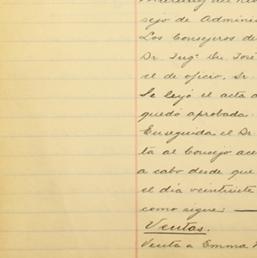 sejo de Adminis
Los Consejeros de
Dr. Ing.º Dn. José
el de oficio, Sr.
Se leyó el acta a
quedó aprobada.
Enseguida el Dr
ta al Consejo ace
a cabo desde que
el día veintisiete
como sigue:
Ventas.
Venta a Emma